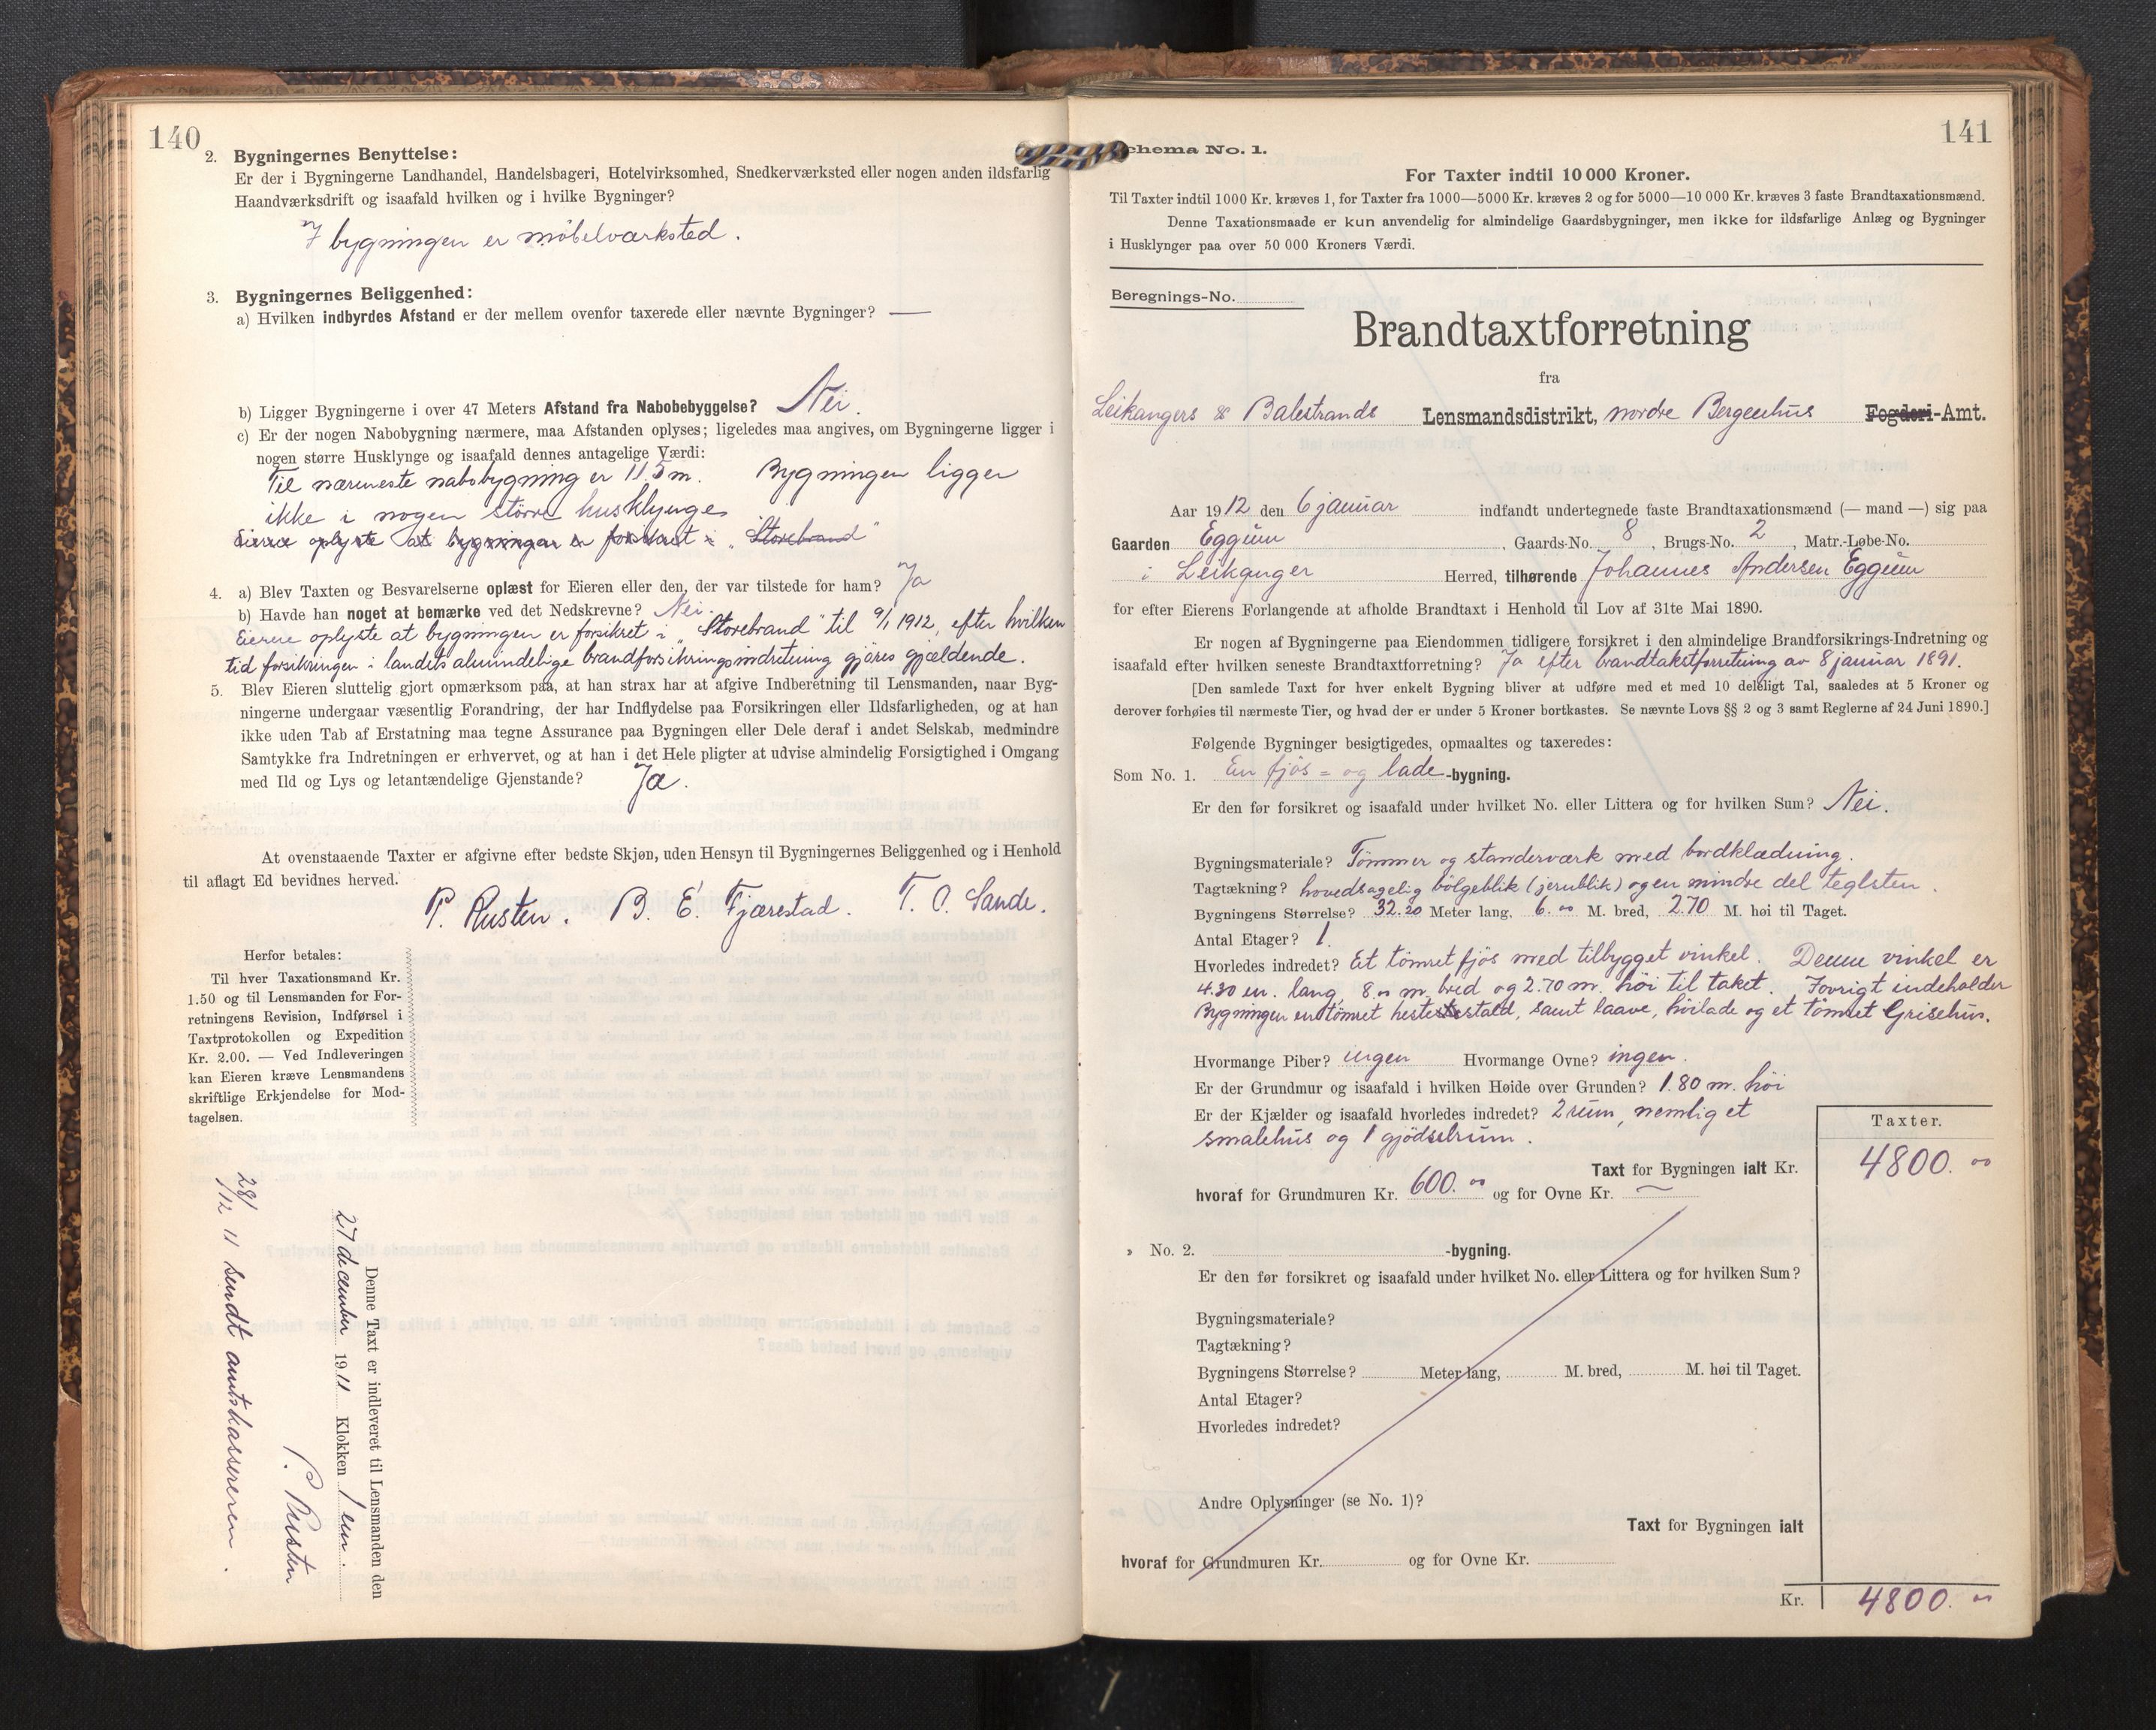 140
2. Bygningernes Benyttelse:
Er der i Bygningerne Landhandel, Handelsbageri, Hotelvirksomhed, Snedkerværksted eller nogen anden ildsfarlig
Haandværksdrift og isaafald hvilken og i hvilke Bygninger?
I bygningen er møbelværksted.
3. Bygningernes Beliggenhed:
a) Hvilken indbyrdes Afstand er der mellem ovenfor taxerede eller nævnte Bygninger? —
b) Ligger Bygningerne i over 47 Meters Afstand fra Nabobebyggelse? Nei.
c) Er der nogen Nabobygning nærmere, maa Afstanden oplyses; ligeledes maa angives, om Bygningerne ligger i
nogen større Husklynge og isaafald dennes antagelige Værdi:
Til nærmeste nabobygning er 11.5 m. Bygningen ligger
ikke i nogen större husklynge
Eieren oplyste at bygningen er forsikret i "Storebrand"
4. a) Blev Taxten og Besvarelserne oplæst for Eieren eller den, der var tilstede for ham? Ja
b) Havde han noget at bemærke ved det Nedskrevne? Nei.
Eieren oplyste at bygningen er forsikret i "Storebrand" til 9/1 1912, efter hvilken
tid forsikringen i landets almindelige brandforsikringsindretning gjøres gjældende.
5. Blev Eieren sluttelig gjort opmærksom paa, at han strax har at afgive Indberetning til Lensmanden, naar Byg-
ningerne undergaar væsentlig Forandring, der har Indflydelse paa Forsikringen eller Ildsfarligheden, og at han
ikke uden Tab af Erstatning maa tegne Assurance paa Bygningen eller Dele deraf i andet Selskab, medmindre
Samtykke fra Indretningen er erhvervet, og at han i det Hele pligter at udvise almindelig Forsigtighed i Omgang
med Ild og Lys og letantændelige Gjenstande? Ja.
At ovenstaaende Taxter er afgivne efter bedste Skjøn, uden Hensyn til Bygningernes Beliggenhed og i Henhold
til aflagt Ed bevidnes herved.
P. Rusten. B. E. Fjærestad. T. O. Sande.
Herfor betales:
Til hver Taxationsmand Kr.
1.50 og til Lensmanden for For-
retningens Revision, Indførsel i
Taxtprotokollen og Expedition
Kr. 2.00. — Ved Indleveringen
kan Eieren kræve Lensmandens
skriftlige Erkjendelse for Mod-
tagelsen.
Denne Taxt er indleveret til Lensmanden den
27 december 1911 Klokken 1 em.
P. Rusten
28/12 11 sendt amtskassereren.
141
chema No. 1.
For Taxter indtil 10 000 Kroner.
Til Taxter indtil 1000 Kr. kræves 1, for Taxter fra 1000—5000 Kr. kræves 2 og for 5000—10 000 Kr. kræves 3 faste Brandtaxationsmænd.
Denne Taxationsmaade er kun anvendelig for almindelige Gaardsbygninger, men ikke for ildsfarlige Anlæg og Bygninger
i Husklynger paa over 50 000 Kroners Værdi.
Beregnings-No.
Brandtaxtforretning
fra
Leikangers & Balestrands Lensmandsdistrikt, nordre Bergenhus Fogderi-Amt.
Aar 1912 den 6 januar indfandt undertegnede faste Brandtaxationsmænd (— mand —) sig paa
Gaarden Eggum, Gaards-No. 8, Brugs-No. 2, Matr.-Løbe-No.
i Leikanger Herred, tilhørende Johannes Andersen Eggum
for efter Eierens Forlangende at afholde Brandtaxt i Henhold til Lov af 31te Mai 1890.
Er nogen af Bygningerne paa Eiendommen tidligere forsikret i den almindelige Brandforsikrings-Indretning og
isaafald efter hvilken seneste Brandtaxtforretning? Ja efter brandtakstforretning av 8 januar 1891.
[Den samlede Taxt for hver enkelt Bygning bliver at udføre med et med 10 deleligt Tal, saaledes at 5 Kroner og
derover forhøies til nærmeste Tier, og hvad der er under 5 Kroner bortkastes. Se nævnte Lovs §§ 2 og 3 samt Reglerne af 24 Juni 1890.]
Følgende Bygninger besigtigedes, opmaaltes og taxeredes:
Som No. 1. En fjös= og lade-bygning.
Er den før forsikret og isaafald under hvilket No. eller Littera og for hvilken Sum? Nei.
Bygningsmateriale? Tömmer og standerværk med bordklædning.
Tagtækning? hovedsagelig bölgeblik (jernblik) og en mindre del teglsten.
Bygningens Størrelse? 32.20 Meter lang, 6.00 M. bred, 2.70 M. høi til Taget.
Antal Etager? 1.
Hvorledes indredet? Et tömret fjös med tilbygget vinkel. Denne vinkel er
4.30 m. lang, 8.00 m. bred og 2.70 m. höi til taket. Forövrigt indeholder
Bygningen en tömret hestestald, samt laave, höilade og et tömret Grisehus.
Hvormange Piber? ingen Hvormange Ovne? ingen.
Er der Grundmur og isaafald i hvilken Høide over Grunden? 1.80 m. höi
Er der Kjælder og isaafald hvorledes indredet? 2 rum, nemlig et
smalehus og 1 gjödselrum.
Taxter.
Taxt for Bygningen ialt Kr. 4800.00
hvoraf for Grundmuren Kr. 600.00 og for Ovne Kr. —
» No. 2. -bygning.
Er den før forsikret og isaafald under hvilket No. eller Littera og for hvilken Sum?
Bygningsmateriale?
Tagtækning?
Bygningens Størrelse? Meter lang, M. bred, M. høi til Taget.
Antal Etager?
Hvorledes indredet?
Andre Oplysninger (se No. 1)?
Taxt for Bygningen ialt
hvoraf for Grundmuren Kr. og for Ovne Kr.
Kr. 4800.00